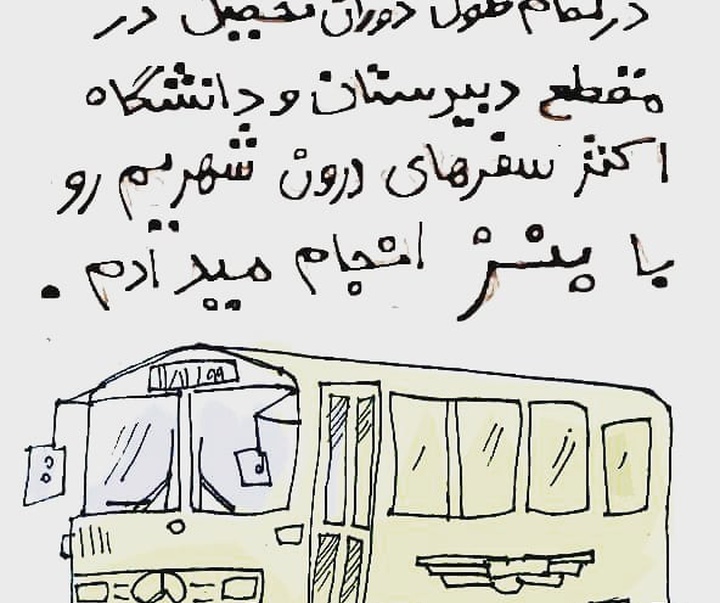 در تمام طول دوران تحصیل در
مقطع دبیرستان و دانشگاه
اکثر سفرهای درون شهریم رو
با بنز انجام میدادم .